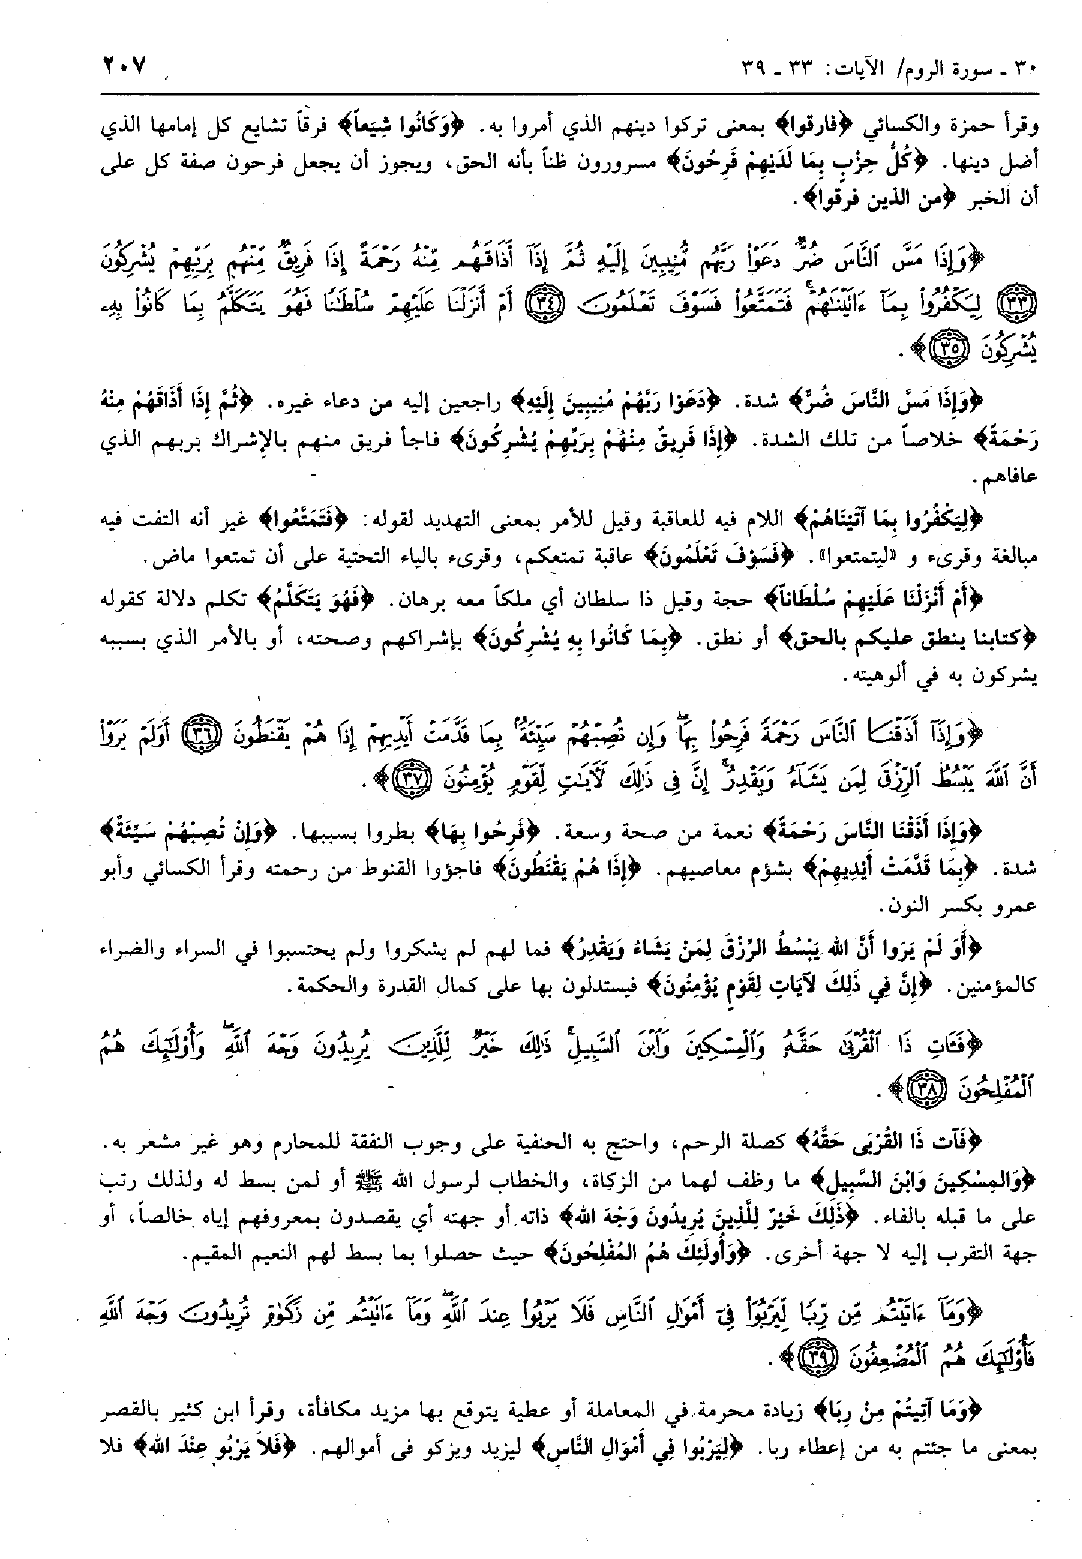 ٣٠ ـ سورة الروم/ الآيات: ٣٣ ـ ٣٩ ٢٠٧
وقرأ حمزة والكسائي ﴿فارقوا﴾ بمعنى تركوا دينهم الذي أمروا به. ﴿وَكَانُوا شِيَعاً﴾ فرقاً تشايع كل إمامها الذي
أضل دينها. ﴿كُلُّ حِزْبٍ بِمَا لَدَيْهِمْ فَرِحُونَ﴾ مسرورون ظناً بأنه الحق، ويجوز أن يجعل فرحون صفة كل على
أن الخبر ﴿من الذين فرقوا﴾.
﴿وَإِذَا مَسَّ ٱلنَّاسَ ضُرٌّ دَعَوْا۟ رَبَّهُم مُّنِيبِينَ إِلَيْهِ ثُمَّ إِذَآ أَذَاقَهُم مِّنْهُ رَحْمَةً إِذَا فَرِيقٌ مِّنْهُم بِرَبِّهِمْ يُشْرِكُونَ
﴿٣٣﴾ لِيَكْفُرُوا۟ بِمَآ ءَاتَيْنَٰهُمْ ۚ فَتَمَتَّعُوا۟ فَسَوْفَ تَعْلَمُونَ ﴿٣٤﴾ أَمْ أَنزَلْنَا عَلَيْهِمْ سُلْطَٰنًا فَهُوَ يَتَكَلَّمُ بِمَا كَانُوا۟ بِهِۦ
يُشْرِكُونَ ﴿٣٥﴾﴾.
﴿وَإِذَا مَسَّ النَّاسَ ضُرٌّ﴾ شدة. ﴿دَعَوْا رَبَّهُمْ مُنِيبِينَ إِلَيْهِ﴾ راجعين إليه من دعاء غيره. ﴿ثُمَّ إِذَا أَذَاقَهُمْ مِنْهُ
رَحْمَةً﴾ خلاصاً من تلك الشدة. ﴿إِذَا فَرِيقٌ مِنْهُمْ بِرَبِّهِمْ يُشْرِكُونَ﴾ فاجأ فريق منهم بالإشراك بربهم الذي
عافاهم.
﴿لِيَكْفُرُوا بِمَا آتَيْنَاهُمْ﴾ اللام فيه للعاقبة وقيل للأمر بمعنى التهديد لقوله: ﴿فَتَمَتَّعُوا﴾ غير أنه التفت فيه
مبالغة وقرىء و «ليتمتعوا». ﴿فَسَوْفَ تَعْلَمُونَ﴾ عاقبة تمتعكم، وقرىء بالياء التحتية على أن تمتعوا ماض.
﴿أَمْ أَنْزَلْنَا عَلَيْهِمْ سُلْطَاناً﴾ حجة وقيل ذا سلطان أي ملكاً معه برهان. ﴿فَهُوَ يَتَكَلَّمُ﴾ تكلم دلالة كقوله
﴿كتابنا ينطق عليكم بالحق﴾ أو نطق. ﴿بِمَا كَانُوا بِهِ يُشْرِكُونَ﴾ بإشراكهم وصحته، أو بالأمر الذي بسببه
يشركون به في ألوهيته.
﴿وَإِذَآ أَذَقْنَا ٱلنَّاسَ رَحْمَةً فَرِحُوا۟ بِهَا ۖ وَإِن تُصِبْهُمْ سَيِّئَةٌۢ بِمَا قَدَّمَتْ أَيْدِيهِمْ إِذَا هُمْ يَقْنَطُونَ ﴿٣٦﴾ أَوَلَمْ يَرَوْا۟
أَنَّ ٱللَّهَ يَبْسُطُ ٱلرِّزْقَ لِمَن يَشَآءُ وَيَقْدِرُ ۚ إِنَّ فِى ذَٰلِكَ لَءَايَٰتٍ لِّقَوْمٍ يُؤْمِنُونَ ﴿٣٧﴾﴾.
﴿وَإِذَا أَذَقْنَا النَّاسَ رَحْمَةً﴾ نعمة من صحة وسعة. ﴿فَرِحُوا بِهَا﴾ بطروا بسببها. ﴿وَإِنْ تُصِبْهُمْ سَيِّئَةٌ﴾
شدة. ﴿بِمَا قَدَّمَتْ أَيْدِيهِمْ﴾ بشؤم معاصيهم. ﴿إِذَا هُمْ يَقْنَطُونَ﴾ فاجؤوا القنوط من رحمته وقرأ الكسائي وأبو
عمرو بكسر النون.
﴿أَوَ لَمْ يَرَوا أَنَّ الله يَبْسُطُ الرِّزْقَ لِمَنْ يَشَاءُ وَيَقْدِرُ﴾ فما لهم لم يشكروا ولم يحتسبوا في السراء والضراء
كالمؤمنين. ﴿إِنَّ فِي ذَلِكَ لآيَاتٍ لِقَوْمٍ يُؤْمِنُونَ﴾ فيستدلون بها على كمال القدرة والحكمة.
﴿فَـَٔاتِ ذَا ٱلْقُرْبَىٰ حَقَّهُۥ وَٱلْمِسْكِينَ وَٱبْنَ ٱلسَّبِيلِ ۚ ذَٰلِكَ خَيْرٌ لِّلَّذِينَ يُرِيدُونَ وَجْهَ ٱللَّهِ ۖ وَأُو۟لَٰٓئِكَ هُمُ
ٱلْمُفْلِحُونَ ﴿٣٨﴾﴾.
﴿فَآت ذَا القُرْبَى حَقَّهُ﴾ كصلة الرحم، واحتج به الحنفية على وجوب النفقة للمحارم وهو غير مشعر به.
﴿وَالمِسْكِينَ وَابْنَ السَّبِيلِ﴾ ما وظف لهما من الزكاة، والخطاب لرسول الله ﷺ أو لمن بسط له ولذلك رتب
على ما قبله بالفاء. ﴿ذَلِكَ خَيْرٌ لِلَّذِينَ يُرِيدُونَ وَجْهَ الله﴾ ذاته أو جهته أي يقصدون بمعروفهم إياه خالصاً، أو
جهة التقرب إليه لا جهة أخرى. ﴿وَأُولَئِكَ هُمُ المُفْلِحُونَ﴾ حيث حصلوا بما بسط لهم النعيم المقيم.
﴿وَمَآ ءَاتَيْتُم مِّن رِّبًا لِّيَرْبُوَا۟ فِىٓ أَمْوَٰلِ ٱلنَّاسِ فَلَا يَرْبُوا۟ عِندَ ٱللَّهِ ۖ وَمَآ ءَاتَيْتُم مِّن زَكَوٰةٍ تُرِيدُونَ وَجْهَ ٱللَّهِ
فَأُو۟لَٰٓئِكَ هُمُ ٱلْمُضْعِفُونَ ﴿٣٩﴾﴾.
﴿وَمَا آتَيتُمْ مِنْ رِبًا﴾ زيادة محرمة في المعاملة أو عطية يتوقع بها مزيد مكافأة، وقرأ ابن كثير بالقصر
بمعنى ما جئتم به من إعطاء ربا. ﴿لِيَرْبُوا فِي أَمْوَالِ النَّاسِ﴾ ليزيد ويزكو في أموالهم. ﴿فَلاَ يَرْبُو عِنْدَ الله﴾ فلا